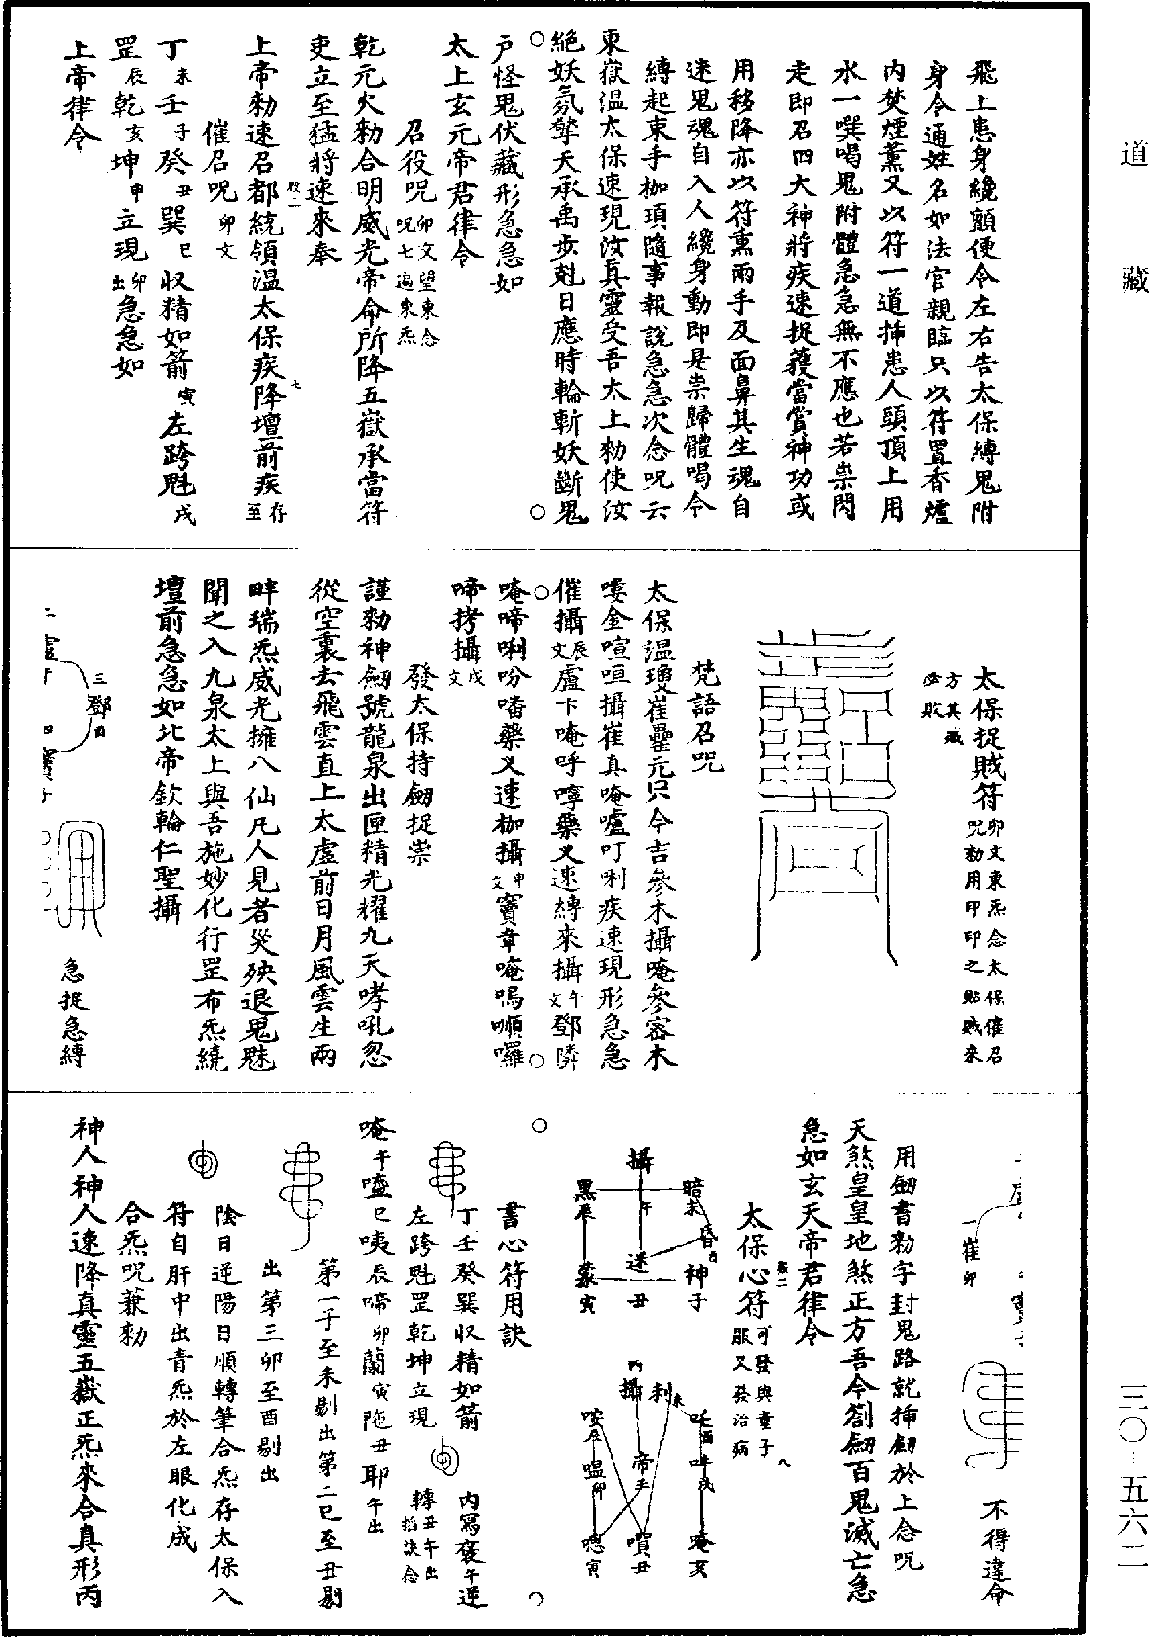 道藏
飛上患身纔顫便令左右告太保縛鬼附
身令通姓名如法官親臨只以符置香爐
內焚煙薰又以符一道揷患人頭頂上用
水一噀喝鬼附體急急無不應也若祟閃
走即召四大神將疾速捉獲當賞神功或
用移降亦以符熏兩手及面鼻其生魂自
迷鬼魂自入人纔身動即是祟歸體喝令
縛起束手枷項隨事報說急急次念呪云
東嶽温太保速現汝真靈受吾太上勑使汝
絕妖氛擎天承禹步剋日應時輪斬妖斷鬼
戶怪鬼伏藏形急急如
太上玄元帝君律令
召役呪卯文望東念呪七遍東炁
乾元火勑合明威光帝命所降五嶽承當符
吏立至猛將速來奉
上帝勑速召都統領温太保疾降壇前疾存至
催召呪卯文
丁未壬子癸丑巽巳收精如箭寅左跨魁戌
罡辰乾亥坤申立現卯出急急如
上帝律令
太保捉賊符卯文東炁念太保催召呪勑用印印之貼賊來方其贓必敗
梵語召呪
太保温瓊崔壘元只今吉參木攝唵參容木
嘍金喧咺攝崔真唵嚧叮唎疾速現形急急
催攝辰文盧卞唵呼嘑藥义速縛來攝午文鄧隣
唵啼唎吩噃藥义速枷攝申文竇章唵嗚嗰囉
啼拷攝戌文
發太保持劒捉祟
謹勑神劒號龍泉出匣精光耀九天哮吼忽
從空裏去飛雲直上太虛前日月風雲生兩
畔瑞炁威光擁八仙凡人見者災殃退鬼魅
聞之入九泉太上與吾施妙化行罡布炁繞
壇前急急如北帝欽輪仁聖攝
三鄧
急捉急縛
一崔卯
不得違命
用劒書勑字封鬼路就揷劒於上念呪
天煞皇皇地煞正方吾今劄劒百鬼滅亡急
急如玄天帝君律令
太保心符可發與童子服又發治病
攝午
黑辰
暗未
昏酉
迷丑
神子
寅
攝
利未
吒酉
吽戌
帝子
唵亥
嗔丑
嗯寅
嗢卯
書心符用訣
丁壬癸巽收精如箭
內寫褒午逆
左跨魁罡乾坤立現
轉丑午出掐訣念
唵午嚧巳咦辰啼卯蘭寅陁丑耶午出
第一子至未剔出第二巳至丑剔
出第三卯至酉剔出
陰日逆陽日順轉筆合炁存太保入
符自肝中出青炁於左眼化成
合炁呪兼勑
神人神人速降真靈五嶽正炁來合真形丙
三〇-五六二